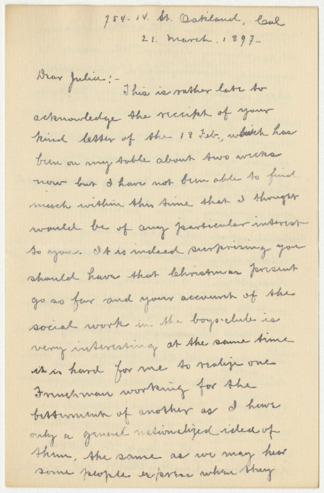 754-14 St. Oakland, Cal
21. March, 1897-
Dear Julien:-
This is rather late to
acknowledge the receipt of your
kind letter of the 18 Feb., which has
been on my table about two weeks
now but I have not been able to find
much within this time that I thought
would be of any particular interest
to you. It is indeed surprizing you
should have that Christmas present
go so far and your account of the
social work in the boys-club is
very interesting at the same time
it is hard for me to realize one
Frenchman working for the
betterment of another as I have
only a general nationalized idea of
them, the same as we may hear
some people express when they